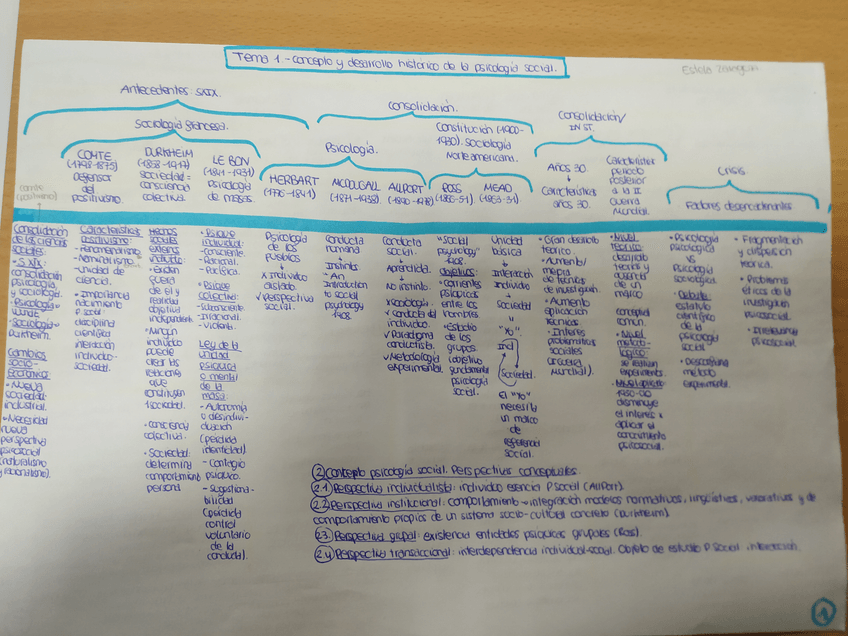 Tema 1.- Concepto y desarrollo histórico de la psicología social.
Estela
Antecedentes: SXIX.
Sociología francesa.
COMTE
(1798-1875)
Defensor
del
positivismo.
DURKHEIM
(1858-1917)
sociedad =
consciencia
colectiva.
LE BON
(1841-1931)
Psicología
de masas.
Consolidación.
Psicología.
HERBART
(1776-1841)
MCDOUGALL
(1871-1938)
ALLPORT
Constitución (1900-
1930). Sociología
Norteamericana.
ROSS
MEAD
Consolidación/
INST.
Años 30.
Características
años 30.
Característica
periodo
posterior
a la II
Guerra
Mundial.
Crisis
Factores desencadenantes
Consolidación
de las ciencias
sociales:
• S.XIX:
consolidación
psicología
y sociología.
• Psicología=
Wundt.
• Sociología=
Durkheim.
Cambios
socio-
económicos
• Nueva
sociedad
industrial.
• Necesidad
nueva
perspectiva
psicosocial
(naturalismo
y racionalismo).
Características
positivismo:
• Fenomenalismo
• Nominalismo
• Unidad de
ciencia.
• Importancia
nacimiento
P. social
disciplina
científica
interacción
individuo-
sociedad.
Hechos
sociales
externos
individuo:
• Existen
fuera
de él y
realidad
objetiva
independiente.
• Ningún
individuo
puede
crear las
relaciones
que
constituyen
la sociedad.
• Consciencia
colectiva.
• Sociedad
determina
comportamiento
persona.
• Psique
individual:
- Consciente.
- Racional.
- Pacífica.
• Psique
colectiva:
- Subconsciente
- Irracional.
- Violenta.
Ley de la
unidad
psíquica
o mental
de la
masa:
- Autonomía
o desindivi-
duación
(pérdida
identidad).
- Contagio
psíquico.
- Sugestiona-
bilidad
(pérdida
control
voluntario
de la
conducta).
Psicología
de los
pueblos
↓
X individuo
aislado.
✓ Perspectiva
social.
Conducta
humana
↓
Instinto
↓
An
Introduction
to social
psychology
1908.
Conducta
social.
↓
Aprendida.
↓
No instinto.
✓ conducta del
individuo.
✓ Paradigma
conductista.
✓ Metodología
experimental.
"Social
psychology"
1908
Objetivos:
• Corrientes
psíquicas
entre los
hombres
• Estudio
de los
grupos.
(objetivo
fundamental
psicología
social).
Unidad
básica
↓
Interacción
Individuo
Sociedad
↓
"Yo"
Ind
Sociedad.
El "Yo"
necesita
un marco
de
referencia
social.
• Gran desarrollo
teórico
• Aumento/
mejora
de técnicas
de investigación
• Aumento
aplicación
técnicas.
• Interés
problemáticas
sociales
(Guerra
Mundial).
• Nivel
teórico:
desarrollo
teórico y
ausencia
de un
marco
conceptual
común.
• Nivel
metodo-
lógico:
se realizan
experimentos.
• Nivel aplicado
1950-60
disminuye
el interés x
aplicar el
conocimiento
psicosocial.
• Psicología
psicológica
VS
Psicología
sociológica.
• Debate:
estatuto
científico
de la
psicología
social
• Desconfianza
método
experimental.
• Fragmentación
y dispersión
teórica.
• Problemas
éticos de la
investigación
psicosocial.
• Irrelevancia
psicosocial.
2 Concepto psicología social. Perspectivas conceptuales.
2.1 Perspectiva individualista: individuo esencia P. social (Allport).
2.2 Perspectiva institucional: comportamiento → integración modelos normativos, lingüísticos, valorativos y de
comportamiento propios de un sistema socio-cultural concreto (Durkheim).
2.3. Perspectiva grupal: existencia entidades psíquicas grupales (Ross).
2.4 Perspectiva transaccional: interdependencia individual-social. Objeto de estudio P. social: interacción.
1